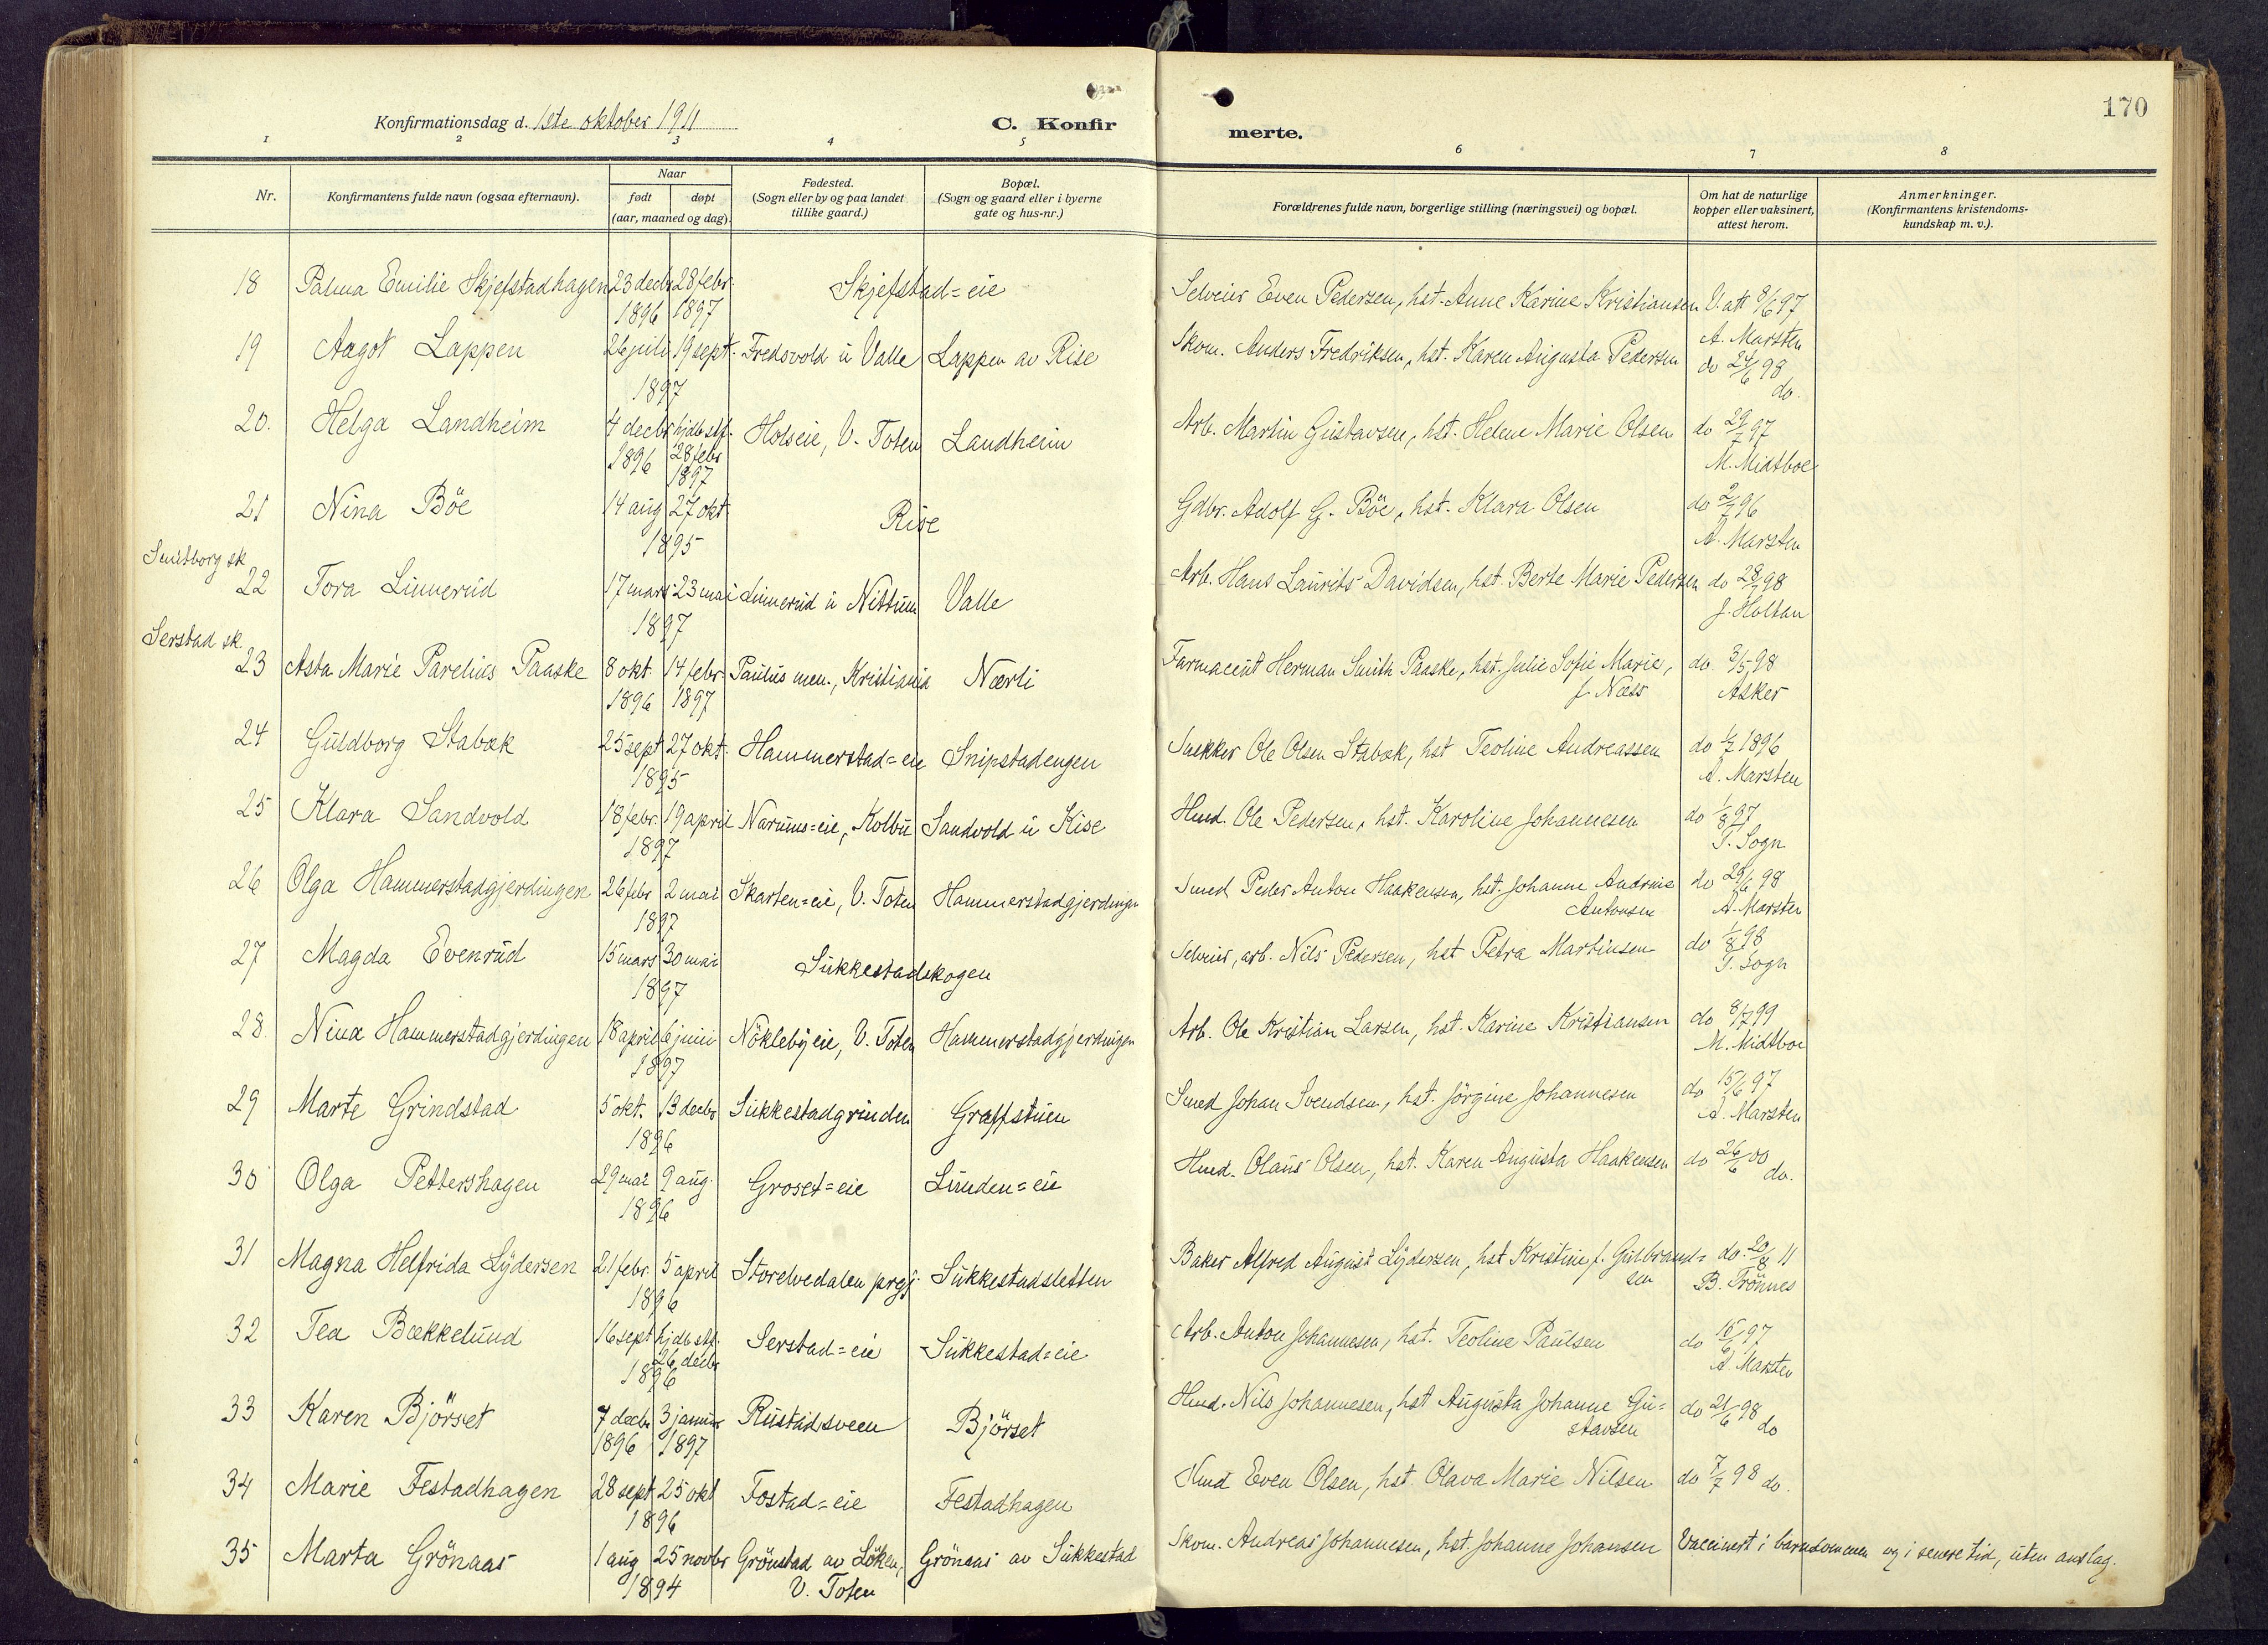 170
Konfirmationsdag d. 1ste oktober 1911
C. Konfir
merte.
1 2 3 4 5 6 7 8
Nr.
Konfirmantens fulde navn (ogsaa efternavn).
Naar
født døpt
(aar, maaned og dag).
Fødested.
(Sogn eller by og paa landet
tillike gaard.)
Bopæl.
(Sogn og gaard eller i byerne
gate og hus-nr.)
Forældrenes fulde navn, borgerlige stilling (næringsvei) og bopæl.
Om hat de naturlige
kopper eller vaksinert,
attest herom.
Anmerkninger.
(Konfirmantens kristendoms-
kundskap m. v.).
18 Palma Emilie Skjefstadhagen 23 decbr 28 febr. Skjefstad=eie Selveier Even Pedersen, hst. Anne Karine Kristiansen V. att 8/6 97
1896 1897 A. Marsten
19 Aagot Lappen 26 juli 19 sept. Fredsvold u Valle Lappen av Rise Skom. Anders Fredriksen, hst. Karen Augusta Pedersen do 24/6 98
1897 do.
20. Helga Landheim 4 decbr hjdb stf. Holseie, V. Toten Landheim Arb. Martin Gustavsen, hst. Helene Marie Olsen do 29/7 97
1896 28 febr M. Midtboe
1897
21 Nina Böe 14 aug 27 okt Rise Gdbr. Adolf G. Böe, hst. Klara Olsen do 2/7 96
1895 A. Marsten
sk
22 Tora Linnerud 17 mars 23 mai Linnerud u Nittum Valle Arb. Hans Laurits Davidsen, hst. Berte Marie Pedersen do 28/7 98
1897 J. Holtan
Serstad sk.
23 Asta Marie Parelius Paaske 8 okt 14 febr. Paulus men., Kristiania Nærli Farmaceut Herman Smith Paaske, hst. Julie Sofie Marie, do. 3/5 98
1896 1897 f. Næss Asker
24 Guldborg Stabæk 25 sept 27 okt. Hammerstad=eie Snipstadengen Snekker Ole Olsen Stabæk, hst Teoline Andreassen do 1/7 1896
1895 A. Marsten
25 Klara Sandvold 18 febr. 19 april Narums=eie, Kolbu Sandvold u Kise Hmd. Ole Pedersen, hst. Karoline Johannesen do 1/8 97
1897 T. Sogn
26 Olga Hammerstadgjerdingen 26 febr 2 mai Skarten=eie, V. Toten Hammerstadgjerdingen Smed Peder Anton Haakensen, hst. Johanne Andrine do 29/6 98
1897 Antonsen A. Marsten
27 Magda Evenrud 15 mars 30 mai Sukkestadskogen Selveier, arb. Nils Pedersen, hst Petra Martinsen do 1/8 98
1897 T. Sogn
28 Nina Hammerstadgjerdingen 18 april 6 juni Nöklebyeie, V. Toten Hammerstadgjerdingen Arb. Ole Kristian Larsen, hst. Karine Kristiansen do 8/7 99
1897 M. Midtboe
29 Marte Grindstad 5 okt. 13 decbr Sukkestadgrinden Graffstuen Smed Johan Svendsen, hst. Jörgine Johannesen do 15/6 97
1896 A. Marsten
30 Olga Pettershagen 29 mai 9 aug. Groset=eie Lunden=eie Hmd. Olaus Olsen, hst. Karen Augusta Haakensen do 26/6 00
1896 do.
31 Magna Helfrida Lydersen 21 febr. 5 april Storelvedalen prgj. Sukkestadsletten Baker Alfred August Lydersen, hst Kristine f. Gulbrand= do 20/8 11
1896 sen B. Trönnes
32 Tea Bækkelund 16 sept hjdb stf. Serstad=eie Sukkestad=eie Arb. Anton Johannesen, hst. Teoline Paulsen do 15/6 97
26 decbr A Marsten
1896
33 Karen Björset 7 decbr 3 januar Rustadsveen Björset Hmd. Nils Johannesen, hst Augusta Johanne Gu= do 21/6 98
1896 1897 stavsen do
34 Marie Festadhagen 28 sept 25 okt Fostad=eie Festadhagen Hmd Even Olsen, hst. Olava Marie Nilsen do 7/7 98 do.
1896
35 Marta Grönaas 1 aug 25 novbr Grönstad av Löken, Grönaas av Sukkestad Skom. Andreas Johannesen, hst. Johanne Johansen Vaccinert i barndommen og i senere tid, uten anslag.
1894 V. Toten